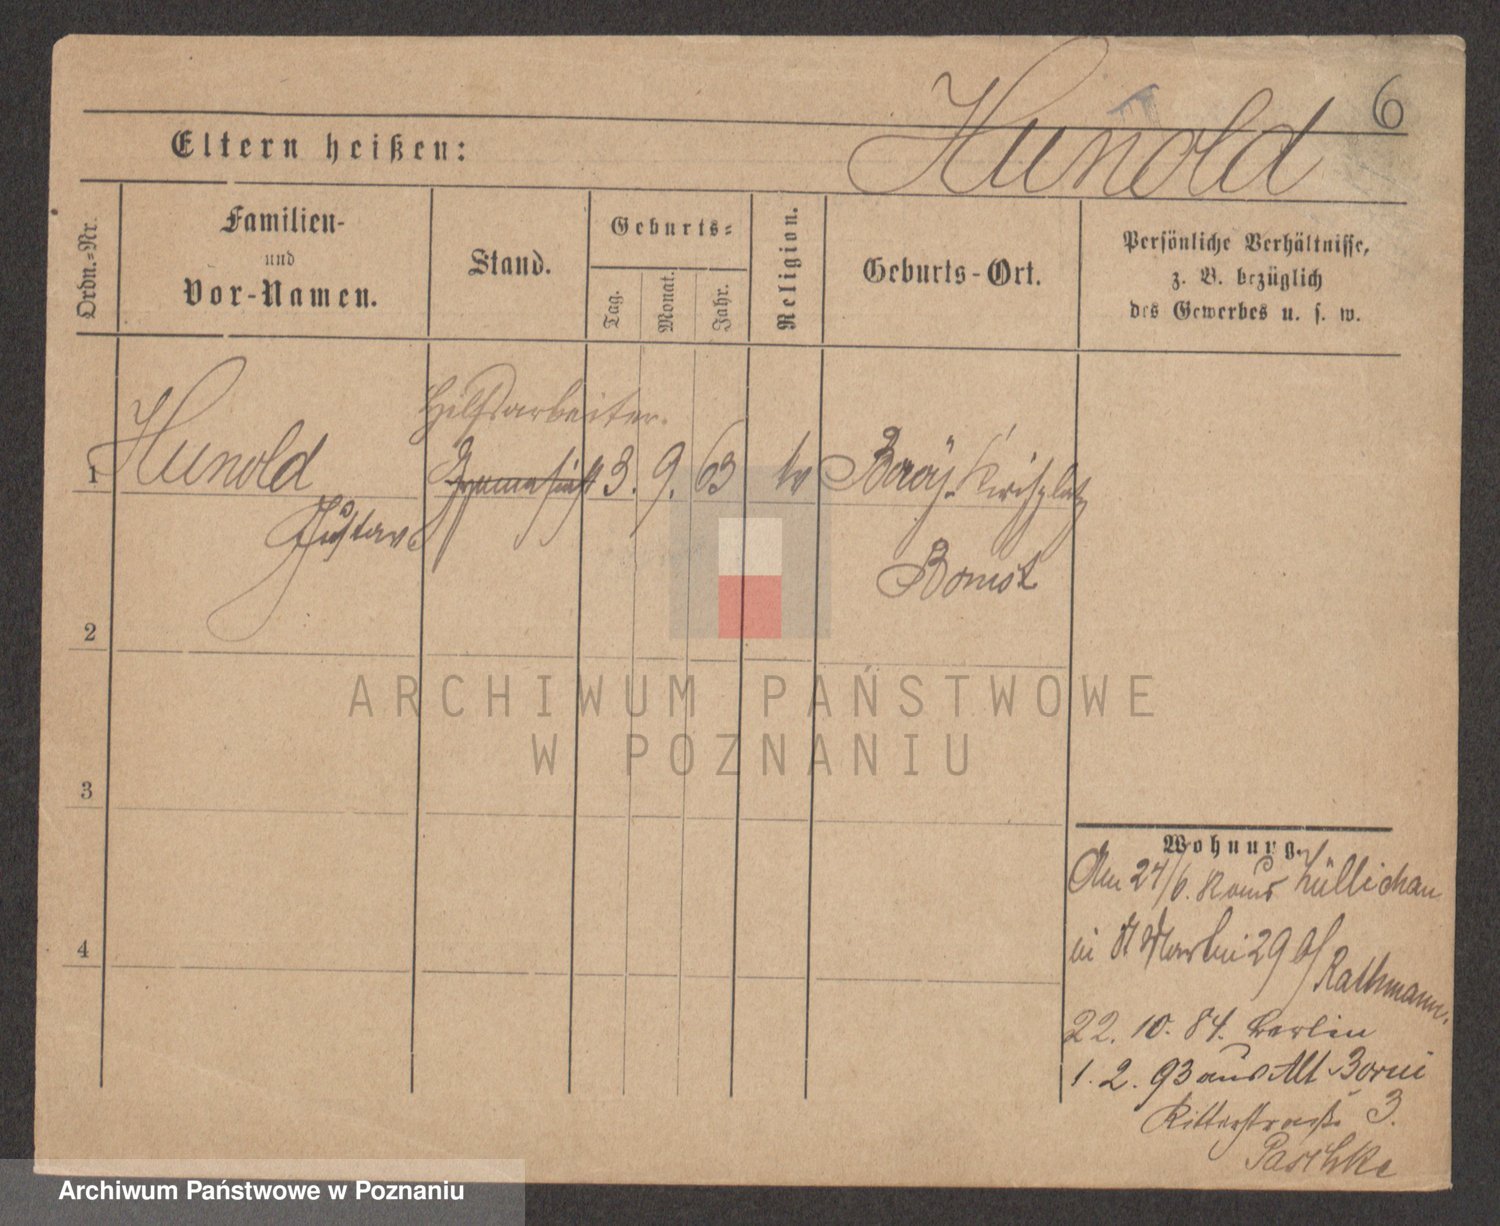 6
Hunold
Eltern heißen:
Ordn.-Nr.
Familien-
und
Vor-Namen.
Stand.
Geburts-
Tag.
Monat.
Jahr.
Religion.
Geburts-Ort.
Persönliche Verhältnisse,
z. B. bezüglich
des Gewerbes u. s. w.
Hilfsarbeiter.
1 Hunold 3. 9. 63 ev Kirchplatz
Gustav
Bomst
2
ARCHIWUM PAŃSTWOWE
W POZNANIU
3
4
Wohnung.
Am 24/6. aus Züllichau
in St Martin 29 b/
Rathmann.
22. 10. 84. Berlin
1. 2. 93 aus Alt Borui
Ritterstraße 3.
Paschke
Archiwum Państwowe w Poznaniu